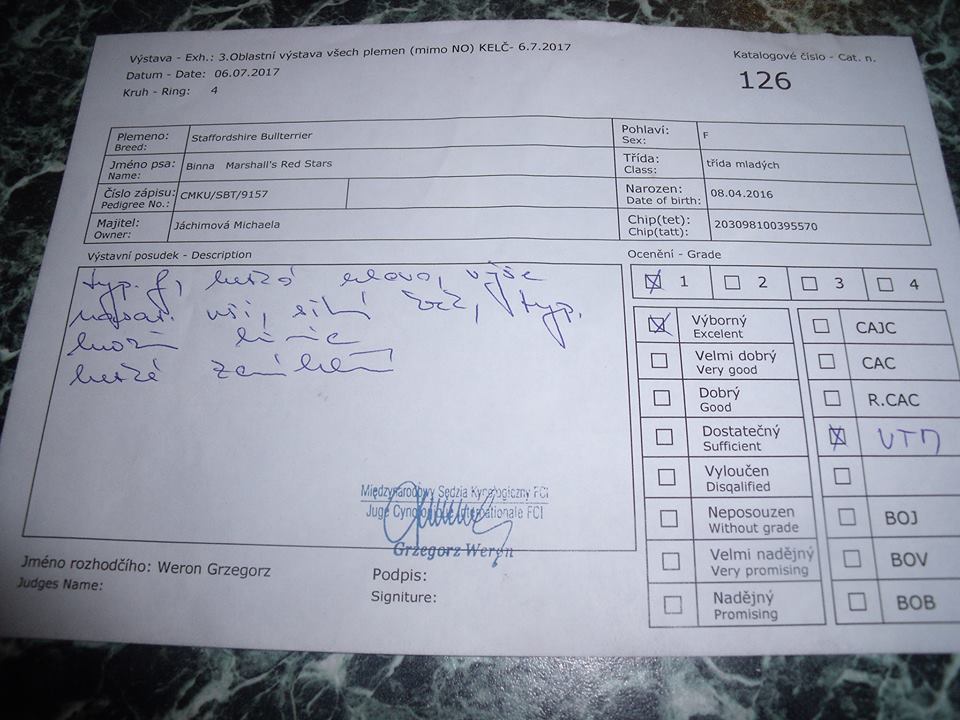 Výstava - Exh.: 3.Oblastní výstava všech plemen (mimo NO) KELČ- 6.7.2017
Datum - Date: 06.07.2017
Kruh - Ring: 4
Katalogové číslo - Cat. n.
126
Plemeno: Staffordshire Bullterrier
Breed:
Pohlaví: F
Sex:
Jméno psa: Binna Marshall's Red Stars
Name:
Třída: třída mladých
Class:
Číslo zápisu: CMKU/SBT/9157
Pedigree No.:
Narozen: 08.04.2016
Date of birth:
Majitel: Jáchimová Michaela
Owner:
Chip(tet): 203098100395570
Chip(tatt):
Výstavní posudek - Description
typ. f, hezká hlava, výše
nasaz. uši, silný typ.
horní linie
hezké zaúhlení
Międzynarodowy Sędzia Kynologiczny FCI
Juge Cynologique Internationale FCI
Grzegorz Weron
Jméno rozhodčího: Weron Grzegorz
Judges Name:
Podpis:
Signiture:
Ocenění - Grade
1 2 3 4
Výborný
Excelent
CAJC
Velmi dobrý
Very good
CAC
Dobrý
Good
R.CAC
Dostatečný
Sufficient
VTM
Vyloučen
Disqalified
Neposouzen
Without grade
BOJ
Velmi nadějný
Very promising
BOV
Nadějný
Promising
BOB